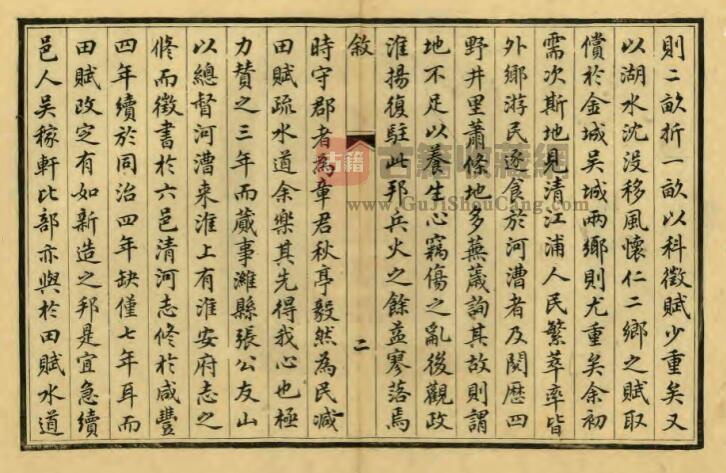 則二畝折一畝以科徵賦少重矣又
以湖水沈没移風懷仁二鄉之賦取
償於金城吳城兩鄉則尤重矣余初
需次斯地見清江浦人民繁萃率皆
外鄉游民逐食於河漕者及閱歷四
野井里蕭條地多蕪薉詢其故則謂
地不足以養生心竊傷之亂後觀政
淮揚復駐此邦兵火之餘益寥落焉
敘
二
時守郡者為章君秋亭毅然為民減
田賦疏水道余樂其先得我心也極
力贊之三年而蕆事濰縣張公友山
以總督河漕來淮上有淮安府志之
修而徵書於六邑清河志修於咸豐
四年續於同治四年缺僅七年耳而
田賦改定有如新造之邦是宜急續
邑人吳稼軒比部亦與於田賦水道
古籍收藏網
www.GuJiShouCang.com